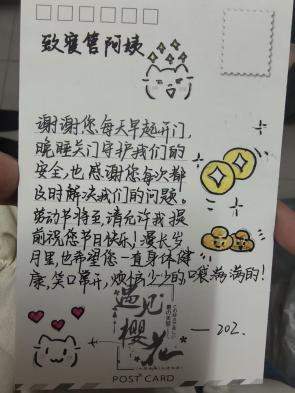 致宿管阿姨
谢谢您每天早起开门,
晚睡关门守护我们的
安全,也感谢您每次都
及时解决我们的问题。
劳动节将至,请允许我提
前祝您节日快乐!漫长岁
月里,也希望您一直身体健
康,笑口常开,烦恼少少的口袋满满的!
遇见
樱花
——202.
POST CARD